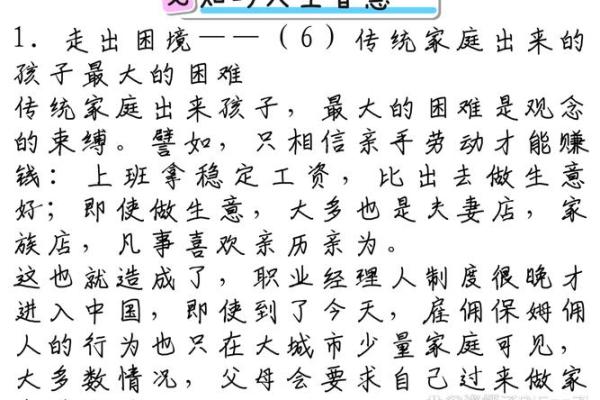 1. 走出困境——（6）传统家庭出来的
孩子最大的困难
传统家庭出来孩子，最大的困难是观念
的束缚。譬如，只相信亲手劳动才能赚
钱：上班拿稳定工资，比出去做生意
好；即使做生意，大多也是夫妻店，家
族店，凡事喜欢亲历亲为。
这也就造成了，职业经理人制度很晚才
进入中国，即使到了今天，雇佣保姆佣
人的行为也只在大城市少量家庭可见，
大多数情况，父母会要求自己过来做家